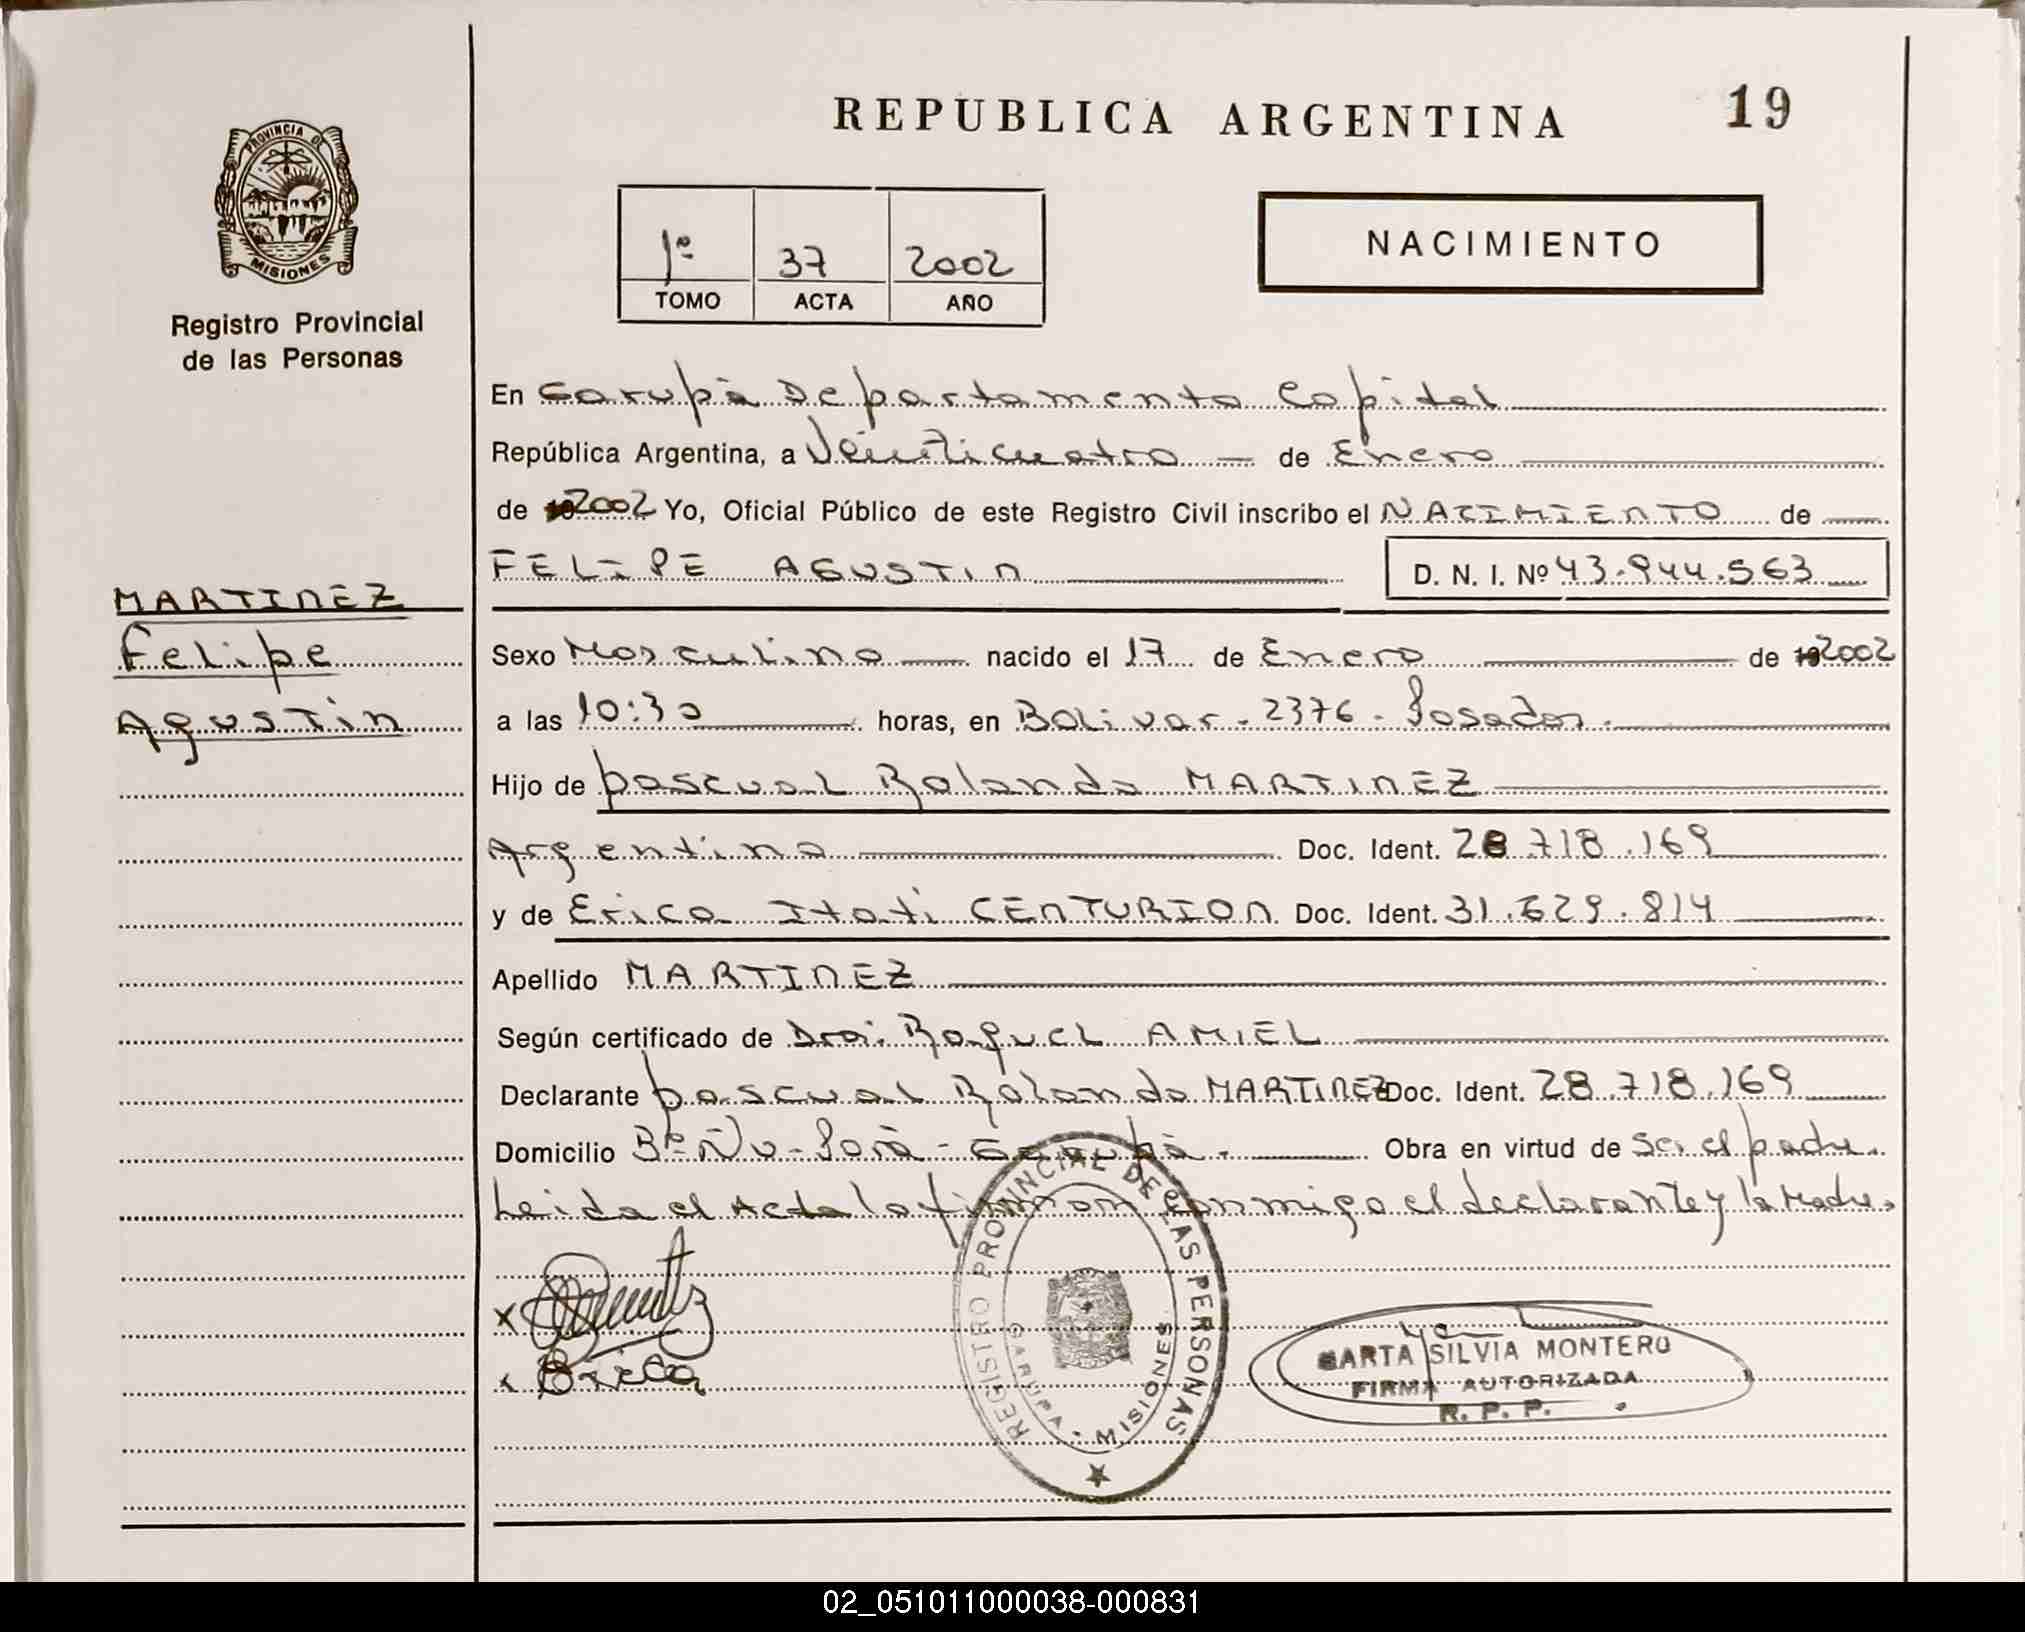 REPUBLICA ARGENTINA
19
PROVINCIA DE
MISIONES
Registro Provincial
de las Personas
1º 37 2002
TOMO ACTA AÑO
NACIMIENTO
En Garupá Departamento Capital
República Argentina, a Veinticuatro — de Enero
de 2002 Yo, Oficial Público de este Registro Civil inscribo el NACIMIENTO de
FELIPE AGUSTIN D. N. I. Nº 43.944.563
MARTINEZ
Felipe
Agustin
Sexo Masculino nacido el 17 de Enero de 2002
a las 10:30 horas, en Bolivar - 2376 - Posadas.
Hijo de pascual Rolando MARTINEZ
Argentina Doc. Ident. 28.718.169
y de Erica Itati CENTURION Doc. Ident. 31.629.814
Apellido MARTINEZ
Según certificado de Dra. Raquel AMIEL
Declarante pascual Rolando MARTINEZ Doc. Ident. 28.718.169
Domicilio Bº Ñu - Porá - Garupá. Obra en virtud de ser el padre.
Leida el Acta la firman conmigo el declarante y la Madre.
REGISTRO PROVINCIAL DE LAS PERSONAS
GARUPA - MISIONES
SILVIA MONTERO
FIRMA AUTORIZADA
R. P. P.
02_051011000038-000831